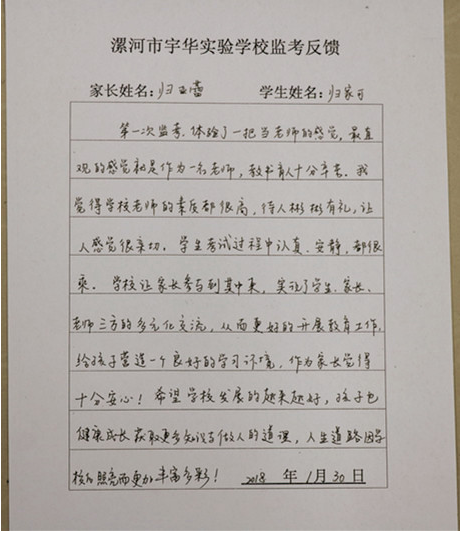 漯河市宇华实验学校监考反馈
家长姓名：归亚蕾 学生姓名：归家可
第一次监考，体验了一把当老师的感觉，最直
观的感觉就是作为一名老师，教书育人十分辛苦。我
觉得学校老师的素质都很高，待人彬彬有礼，让
人感觉很亲切。学生考试过程中认真、安静，都很
乖。学校让家长参与到其中来，实现了学生、家长、
老师三方的多元化交流，从而更好的开展教育工作，
给孩子营造一个良好的学习环境，作为家长觉得
十分安心！希望学校发展的越来越好，孩子也
健康成长获取更多知识与做人的道理，人生道路因学
校的照亮而更加丰富多彩！ 2018 年 1月 30 日